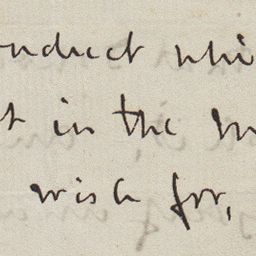 onduct whi
t in the m
wish for,